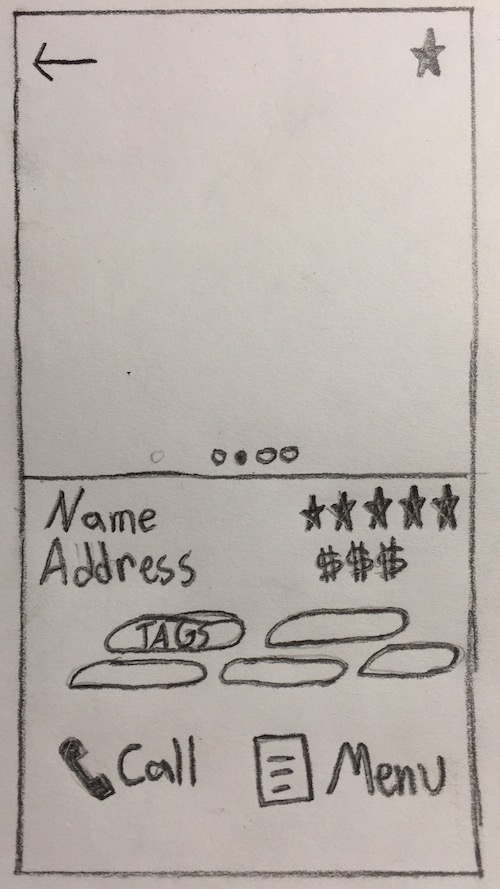 Name
Address
$$$
TAGS
Call
Menu